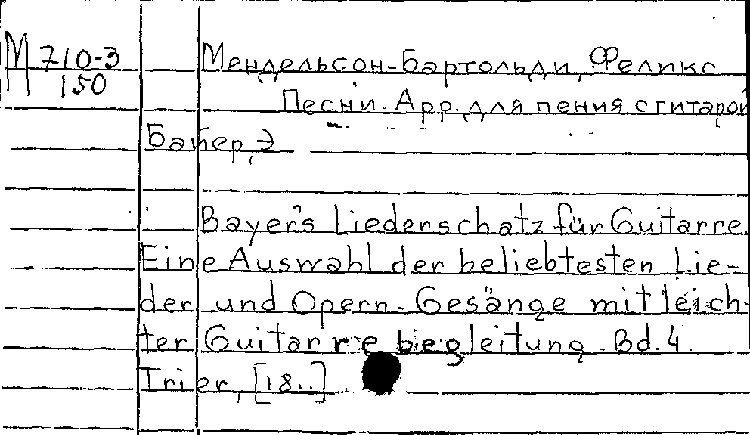 М 710-3
150
Мендельсон-Бартольди, Феликс
Песни. Арр. для пения с гитарой
Байер, Э
Bayer's Liederschatz für Guitarre.
Eine Auswahl der beliebtesten Lie-
der und Opern-Gesänge mit leich-
ter Guitarrebegleitung. Bd. 4.
Trier, [18..]